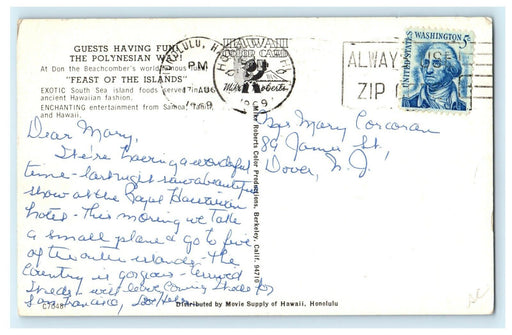 GUESTS HAVING FUN
THE POLYNESIAN WAY
At Don the Beachcomber's world-famous
"FEAST OF THE ISLANDS"
EXOTIC South Sea island foods served in
ancient Hawaiian fashion.
ENCHANTING entertainment from Samoa
and Hawaii.
HONOLULU, HA
PM
AUG
1969
HAWAII
COLOR CARD
Mike Roberts
1969
ALWAY
ZIP
UNITED STATES
WASHINGTON 5c
Dear Mary,
We're having a wonderful
time - last night saw a beautiful
show at the Royal Hawaiian
hotel - This morning we take
a small plane & go to five
of the outer islands - the
country is gorgeous -
will leave Coming Shore for
San Francisco,
Mary Corcoran
89 James St,
Dover, N. J.
Mike Roberts Color Productions, Berkeley, Calif. 94710
C7048
Distributed by Movie Supply of Hawaii, Honolulu